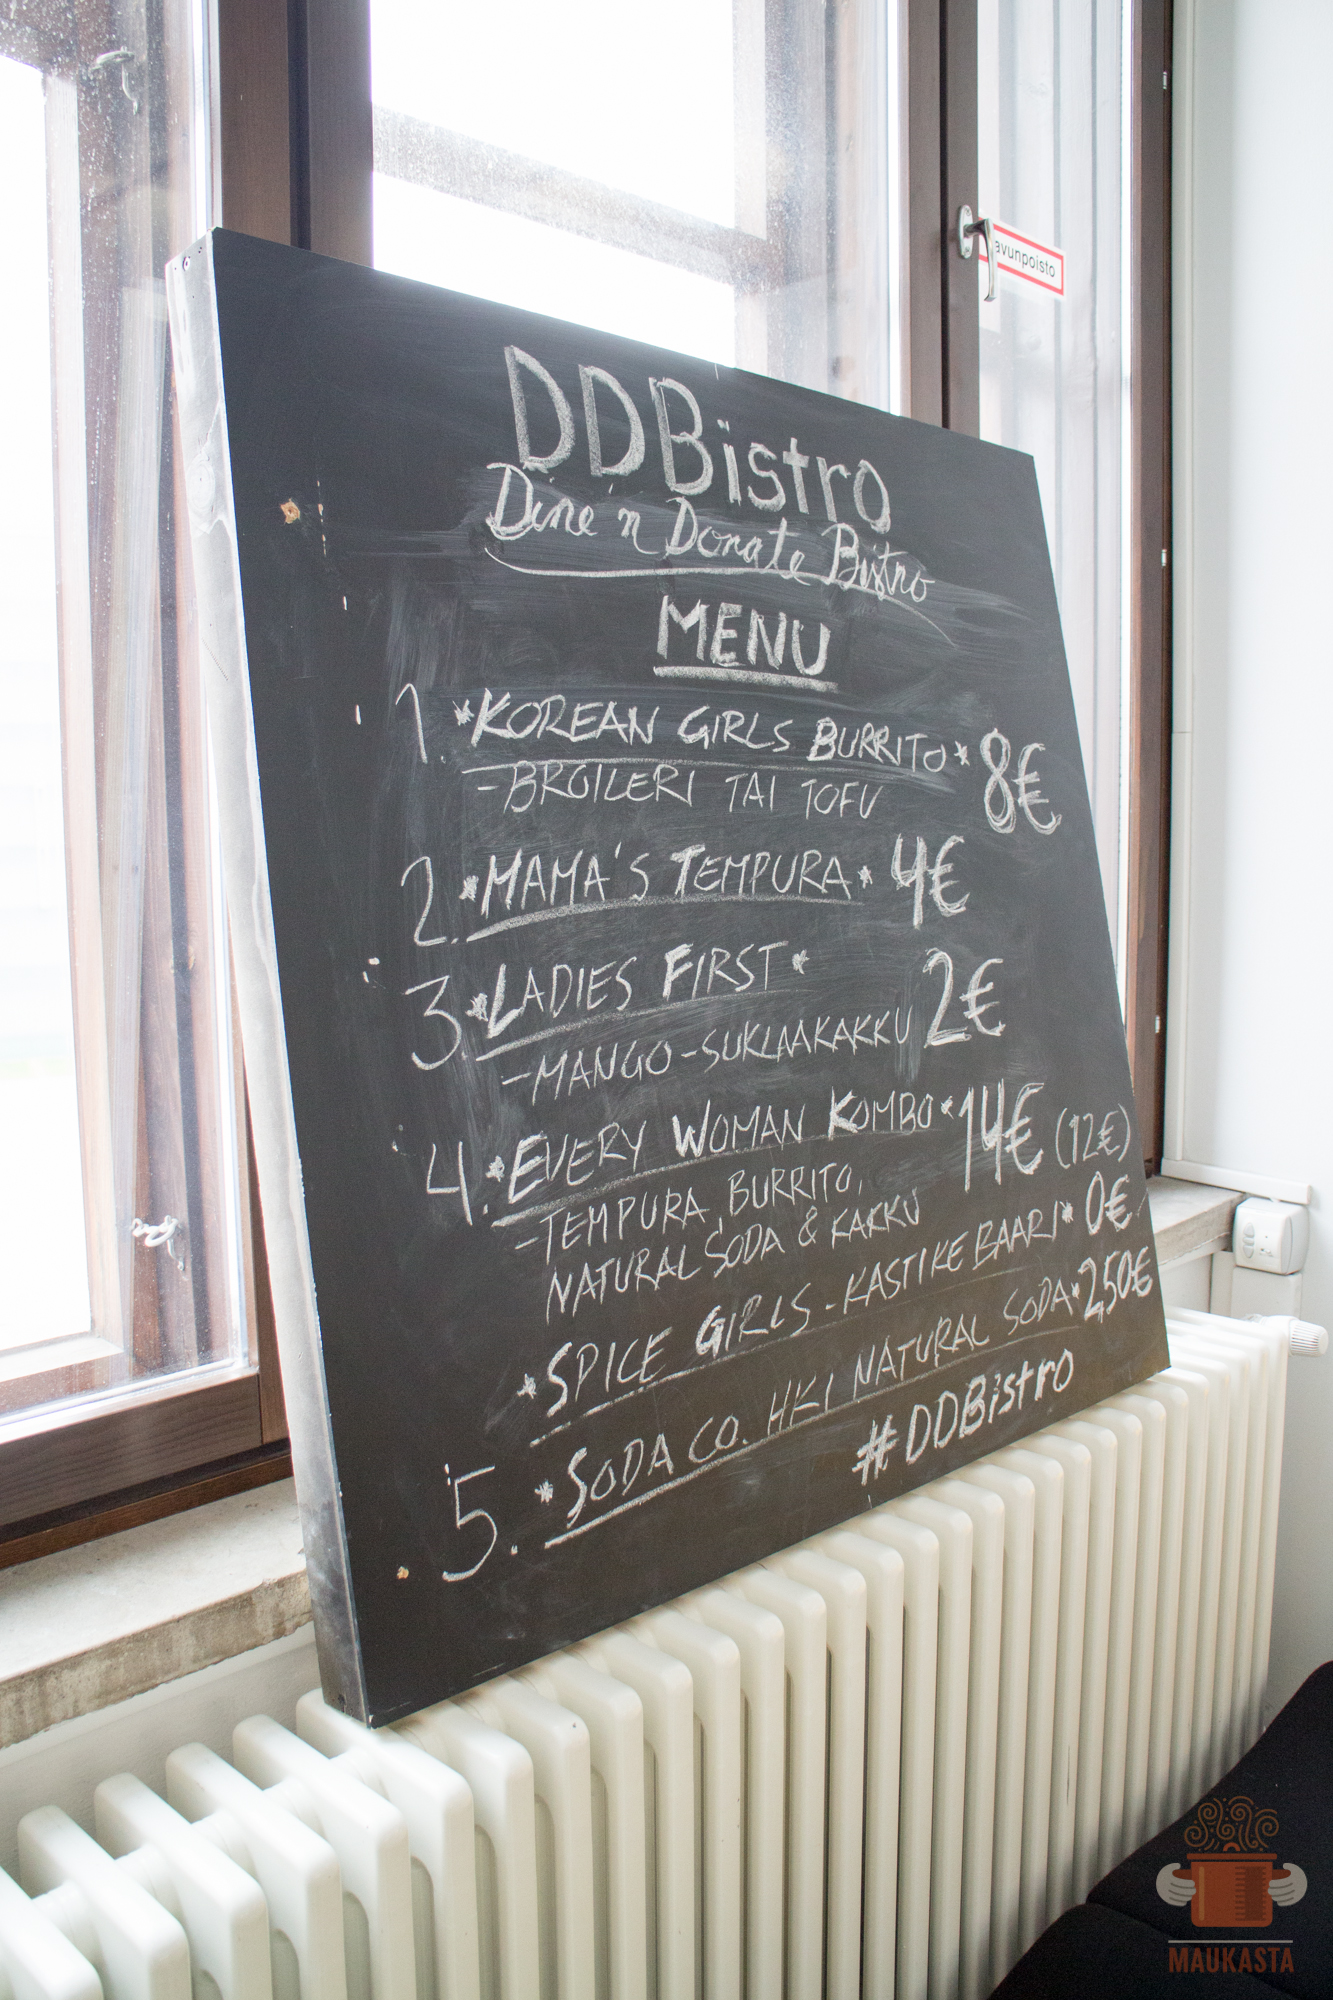 avunpoisto
DDBistro
Dine 'n Donate Bistro
MENU
1. *KOREAN GIRLS BURRITO* 8€
-BROILERI TAI TOFU
2. *MAMA'S TEMPURA* 4€
3. *LADIES FIRST*
-MANGO-SUKLAAKAKKU 2€
4. *EVERY WOMAN KOMBO* 14€ (12€)
-TEMPURA, BURRITO,
NATURAL SODA & KAKKU
*SPICE GIRLS - KASTIKE BAARI* 0€
5. *SODA CO. HKI NATURAL SODA* 2,50€
#DDBistro
MAUKASTA